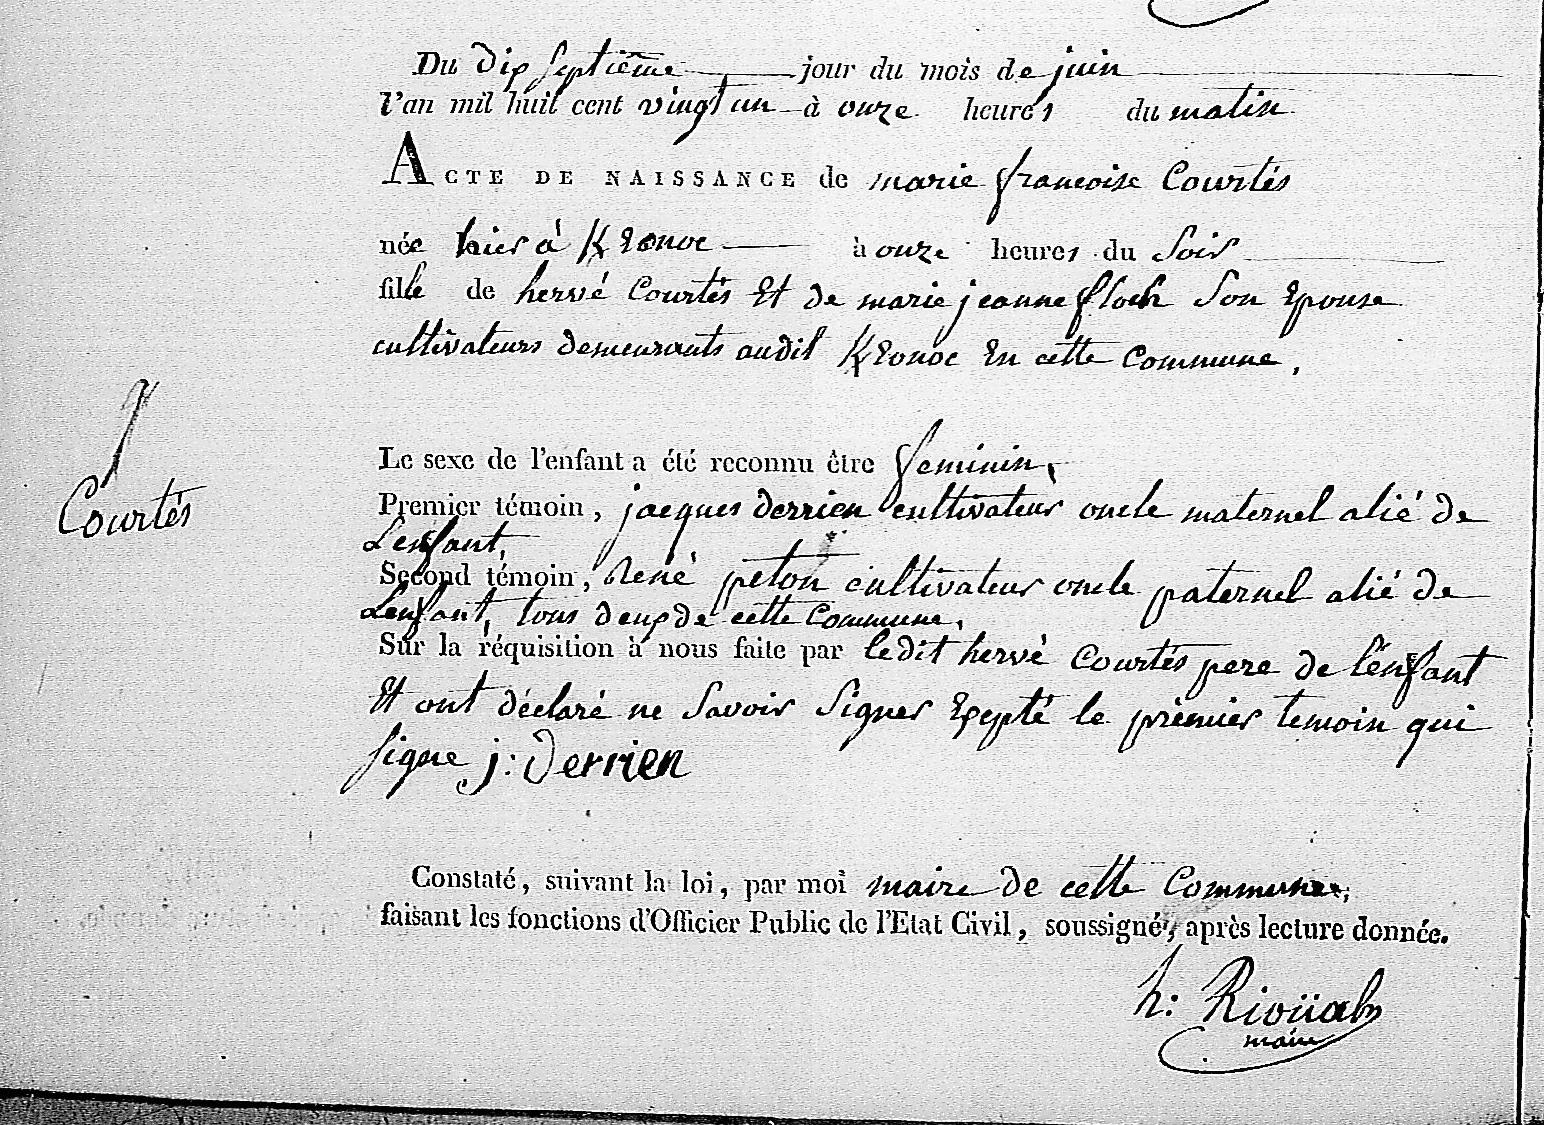 Du dix septième jour du mois de juin
l'an mil huit cent vingt un à onze heures du matin
ACTE DE NAISSANCE de marie françoise Courtés
née hier à Kronoc à onze heures du soir
fille de hervé Courtés Et de marie jeanne floch Son Epouse
cultivateurs demeurants audit Kronoc En cette Commune,
Le sexe de l'enfant a été reconnu être feminin,
Courtés
Premier témoin, jacques derrien cultivateur oncle maternel alié de
L'enfant,
Second témoin, René peton cultivateur oncle paternel alié de
L'enfant, tous deux de cette Commune,
Sur la réquisition à nous faite par ledit hervé Courtés pere de l'énfant
Et ont déclaré ne Savoir Signer Exepté le prèmier temoin qui
signe j: Derrien
Constaté, suivant la loi, par moi maire de cette Commune,
faisant les fonctions d'Officier Public de l'Etat Civil, soussigné, après lecture donnée.
h: Rioüal
maire